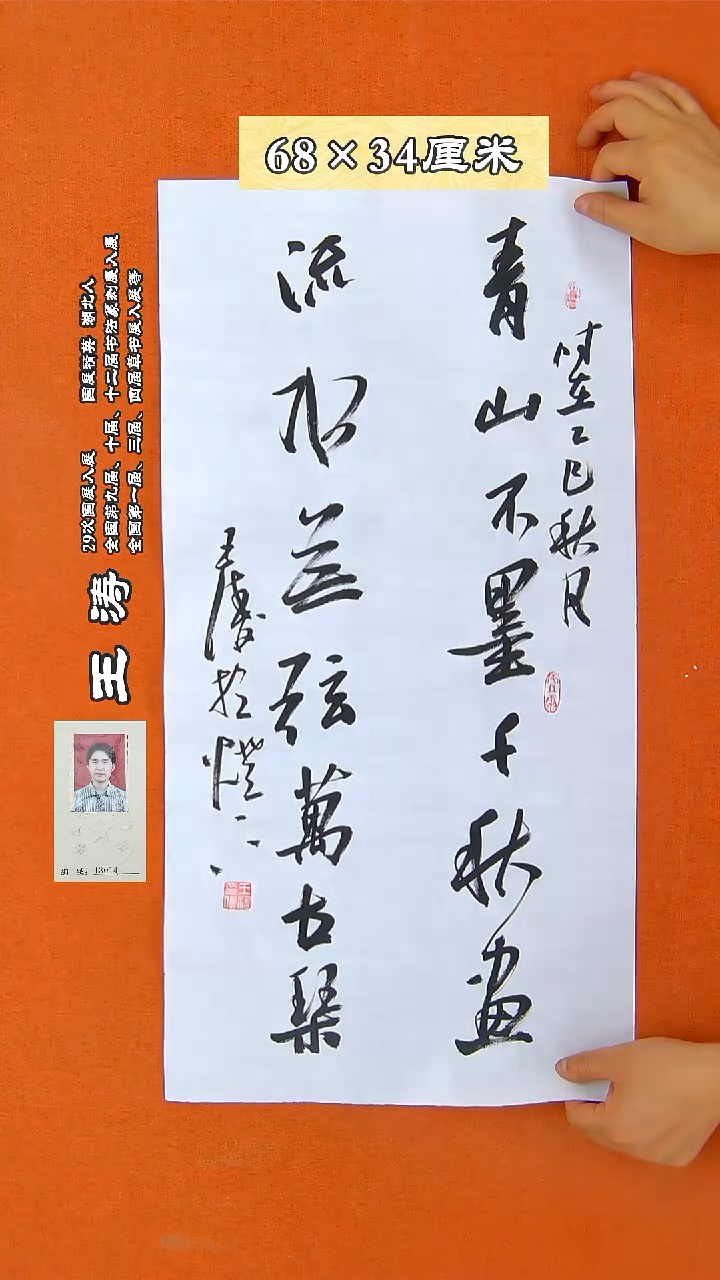 68×34厘米
時在乙巳秋月
青山不墨千秋畫
流水無弦萬古琴
王濤於
29次国展入展 国展精英 湖北人
全国第九届、十届、十二届书法篆刻展入展
全国第一届、三届、四届草书展入展等
王涛